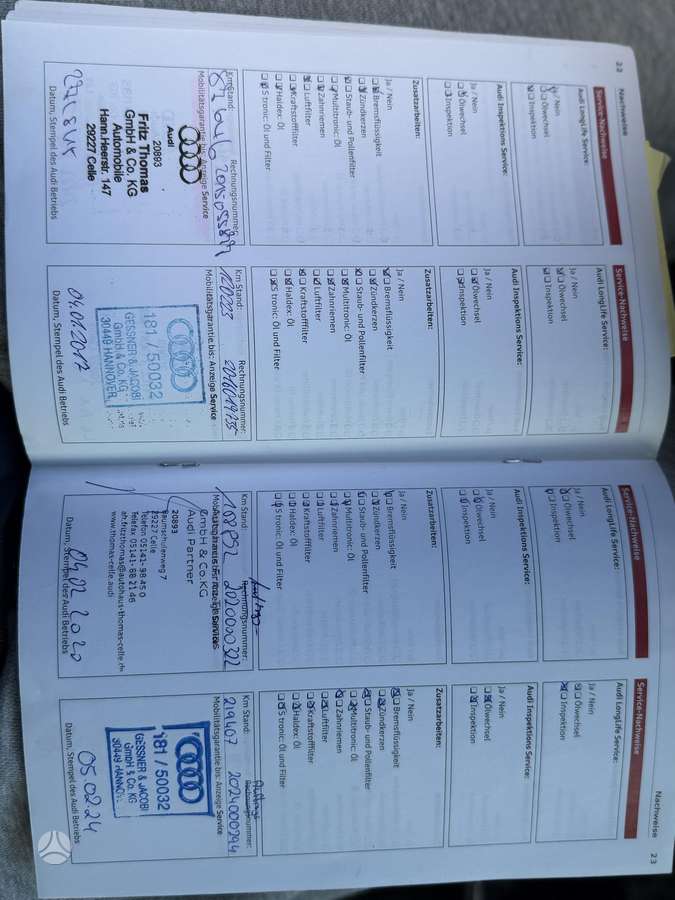 22
Nachweise
Service-Nachweise
Audi LongLife Service:
Ja / Nein
Ölwechsel
Inspektion
Audi Inspektions Service:
Ja / Nein
Ölwechsel
Inspektion
Zusatzarbeiten:
Ja / Nein
Bremsflüssigkeit
Zündkerzen
Staub- und Pollenfilter
Multitronic: Öl
Zahnriemen
Luftfilter
Kraftstofffilter
Haldex: Öl
S tronic: Öl und Filter
Km Stand:
Rechnungsnummer:
Mobilitätsgarantie bis: Anzeige Service
Audi
20893
Fritz Thomas
GmbH & Co. KG
Automobile
Hann.Heerstr. 147
29227 Celle
Datum, Stempel des Audi Betriebs
Service-Nachweise
Audi LongLife Service:
Ja / Nein
Ölwechsel
Inspektion
Audi Inspektions Service:
Ja / Nein
Ölwechsel
Inspektion
Zusatzarbeiten:
Ja / Nein
Bremsflüssigkeit
Zündkerzen
Staub- und Pollenfilter
Multitronic: Öl
Zahnriemen
Luftfilter
Kraftstofffilter
Haldex: Öl
S tronic: Öl und Filter
Km Stand:
Rechnungsnummer:
120223
Mobilitätsgarantie bis: Anzeige Service
181 / 50032
GESSNER & JACOBI
GmbH & Co. KG
30449 HANNOVER
04.01.2017
Datum, Stempel des Audi Betriebs
Service-Nachweise
Audi LongLife Service:
Ja / Nein
Ölwechsel
Inspektion
Audi Inspektions Service:
Ja / Nein
Ölwechsel
Inspektion
Zusatzarbeiten:
Ja / Nein
Bremsflüssigkeit
Zündkerzen
Staub- und Pollenfilter
Multitronic: Öl
Zahnriemen
Luftfilter
Kraftstofffilter
Haldex: Öl
S tronic: Öl und Filter
Km Stand:
Rechnungsnummer:
2020000322
GmbH & Co.KG
Audi Partner
20893
Baumschulenweg 7
29227 Celle
Telefon 05141- 98 45 0
Telefax 05141- 88 21 46
www.thomas-celle.audi
04.02.2020
Datum, Stempel des Audi Betriebs
Nachweise
23
Service-Nachweise
Audi LongLife Service:
Ja / Nein
Ölwechsel
Inspektion
Audi Inspektions Service:
Ja / Nein
Ölwechsel
Inspektion
Zusatzarbeiten:
Ja / Nein
Bremsflüssigkeit
Zündkerzen
Staub- und Pollenfilter
Multitronic: Öl
Zahnriemen
Luftfilter
Kraftstofffilter
Haldex: Öl
S tronic: Öl und Filter
Km Stand:
Auftrags
Rechnungsnummer:
219407 2024000294
Mobilitätsgarantie bis: Anzeige Service
181 / 50032
GESSNER & JACOBI
GmbH & Co. KG
30449 HANNOV
05.02.24
Datum, Stempel des Audi Betriebs